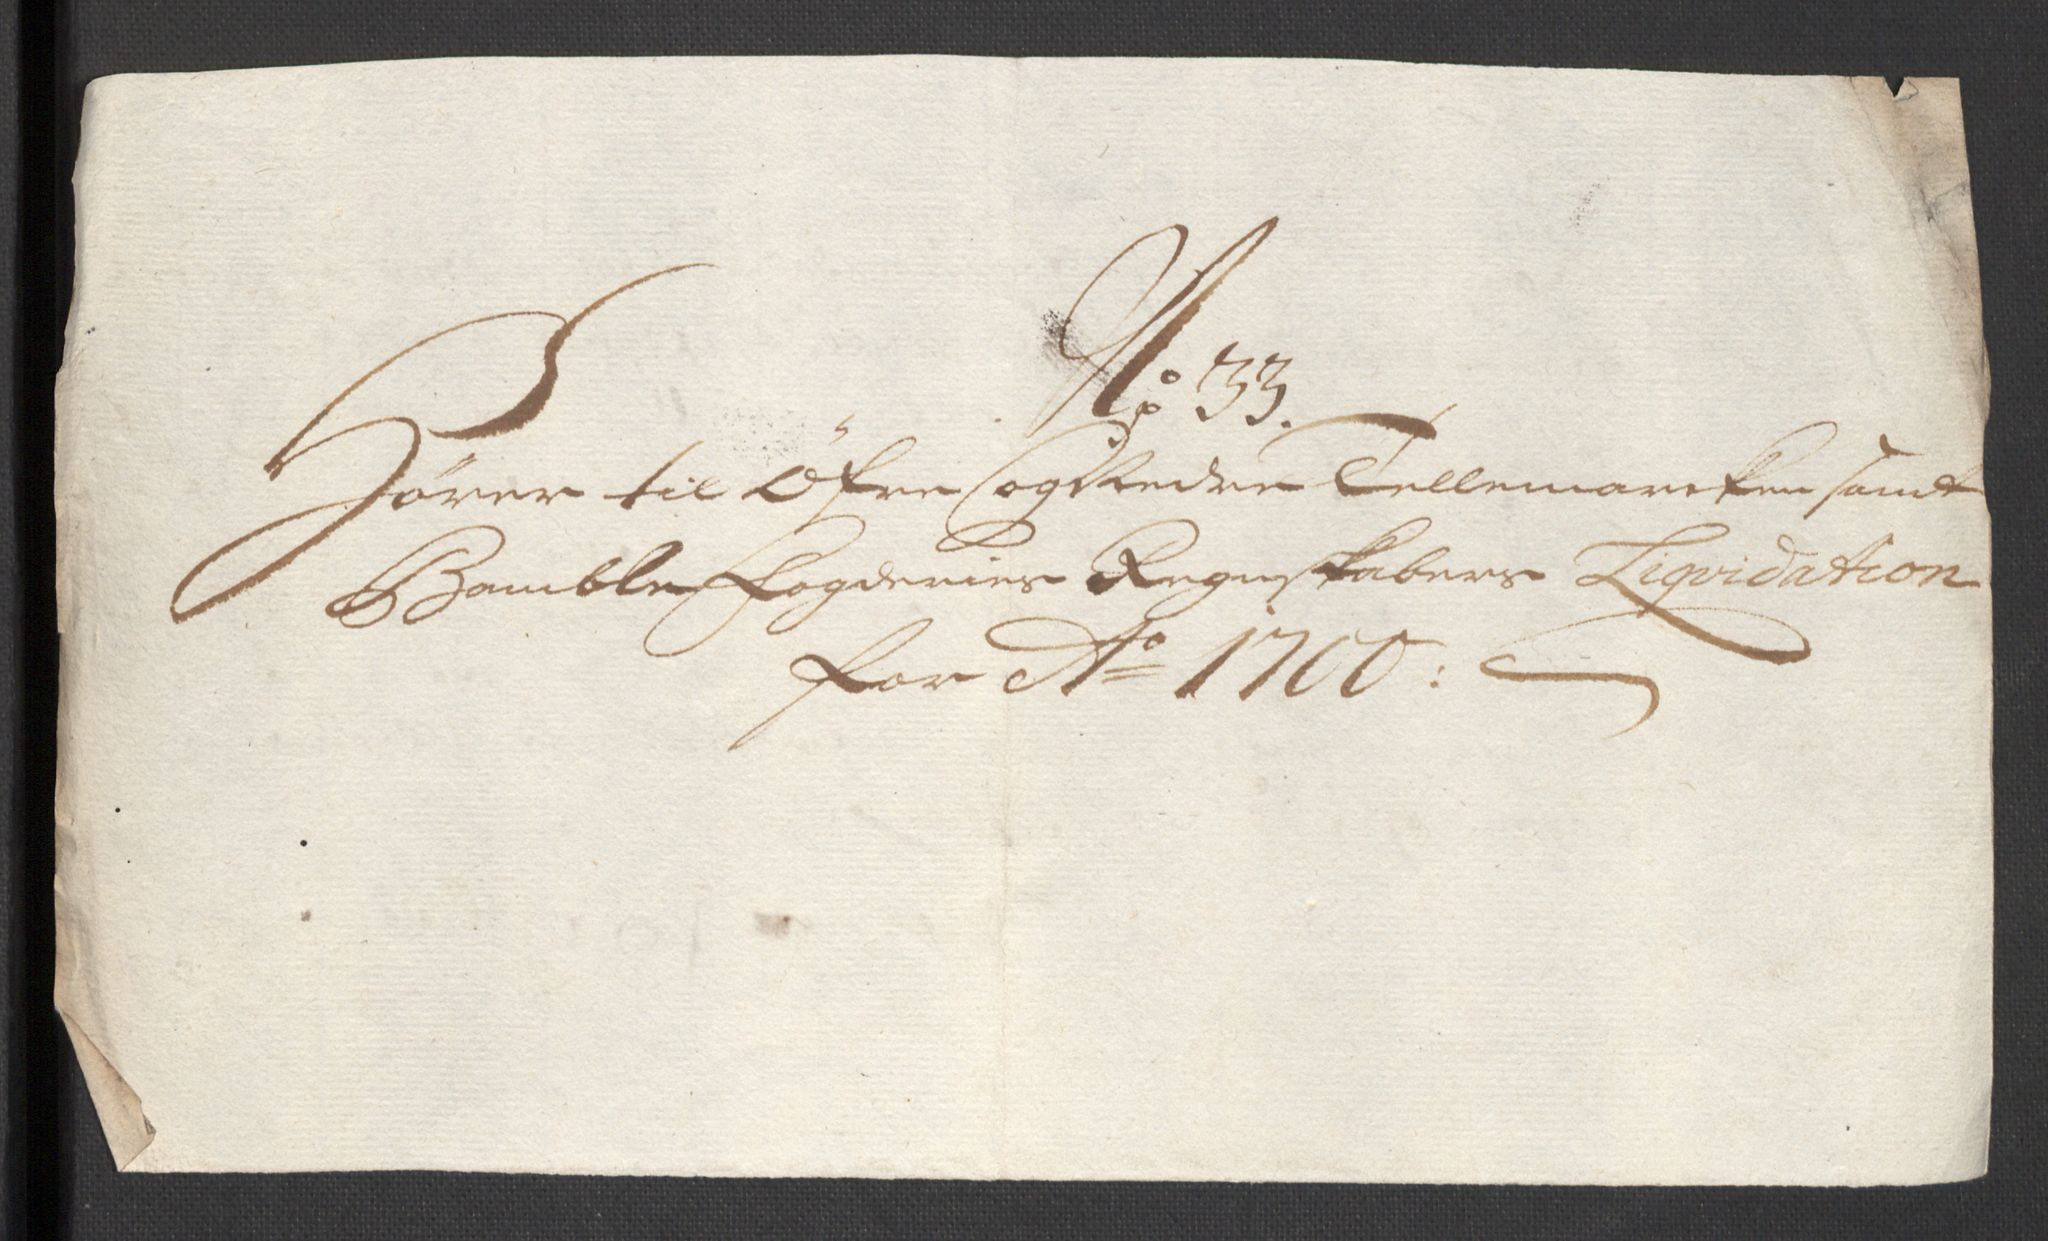 No 33.
Hörer til Öfre og Nedre Tellemarcken samt
Bamble Fogderies Regnskabers Liqvidation
for Ao 1700: